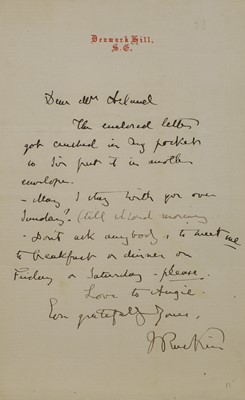 Denmark Hill,
S.E.
Dear Mrs
The enclosed letter
got crushed in my pocket
so I've put it in another
envelope.
- May I stay with you over
Sunday? (till Monday morning
- Don't ask anybody, to meet me
to breakfast or dinner on
Friday or Saturday - please.
Love to Angie.
Ever gratefully Yours,
J Ruskin